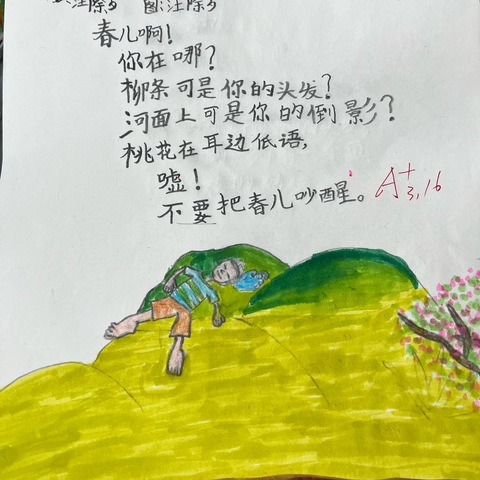 图:汪际
春儿啊!
你在哪?
柳条可是你的头发?
河面上可是你的倒影?
桃花在耳边低语,
嘘!
不要把春儿吵醒。
A+
3.16